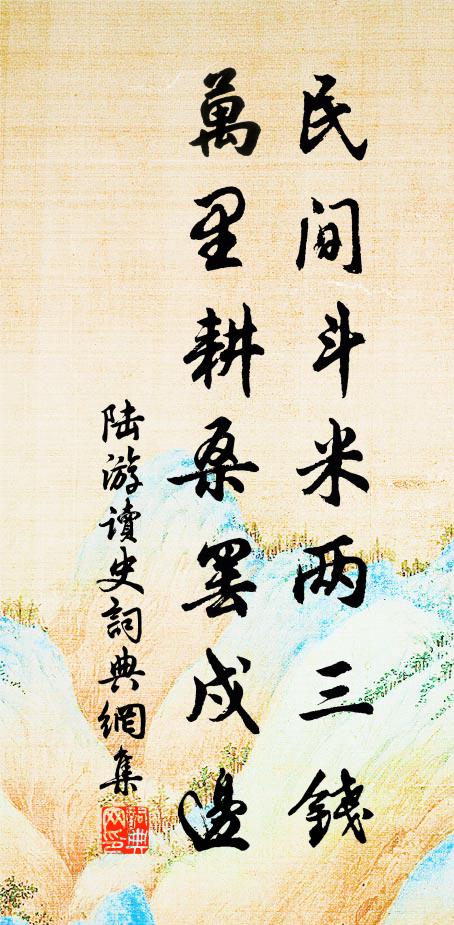 民间斗米两三錢
萬里耕桑罢戍邊
陆游讀史詞典網集
詞典
网印